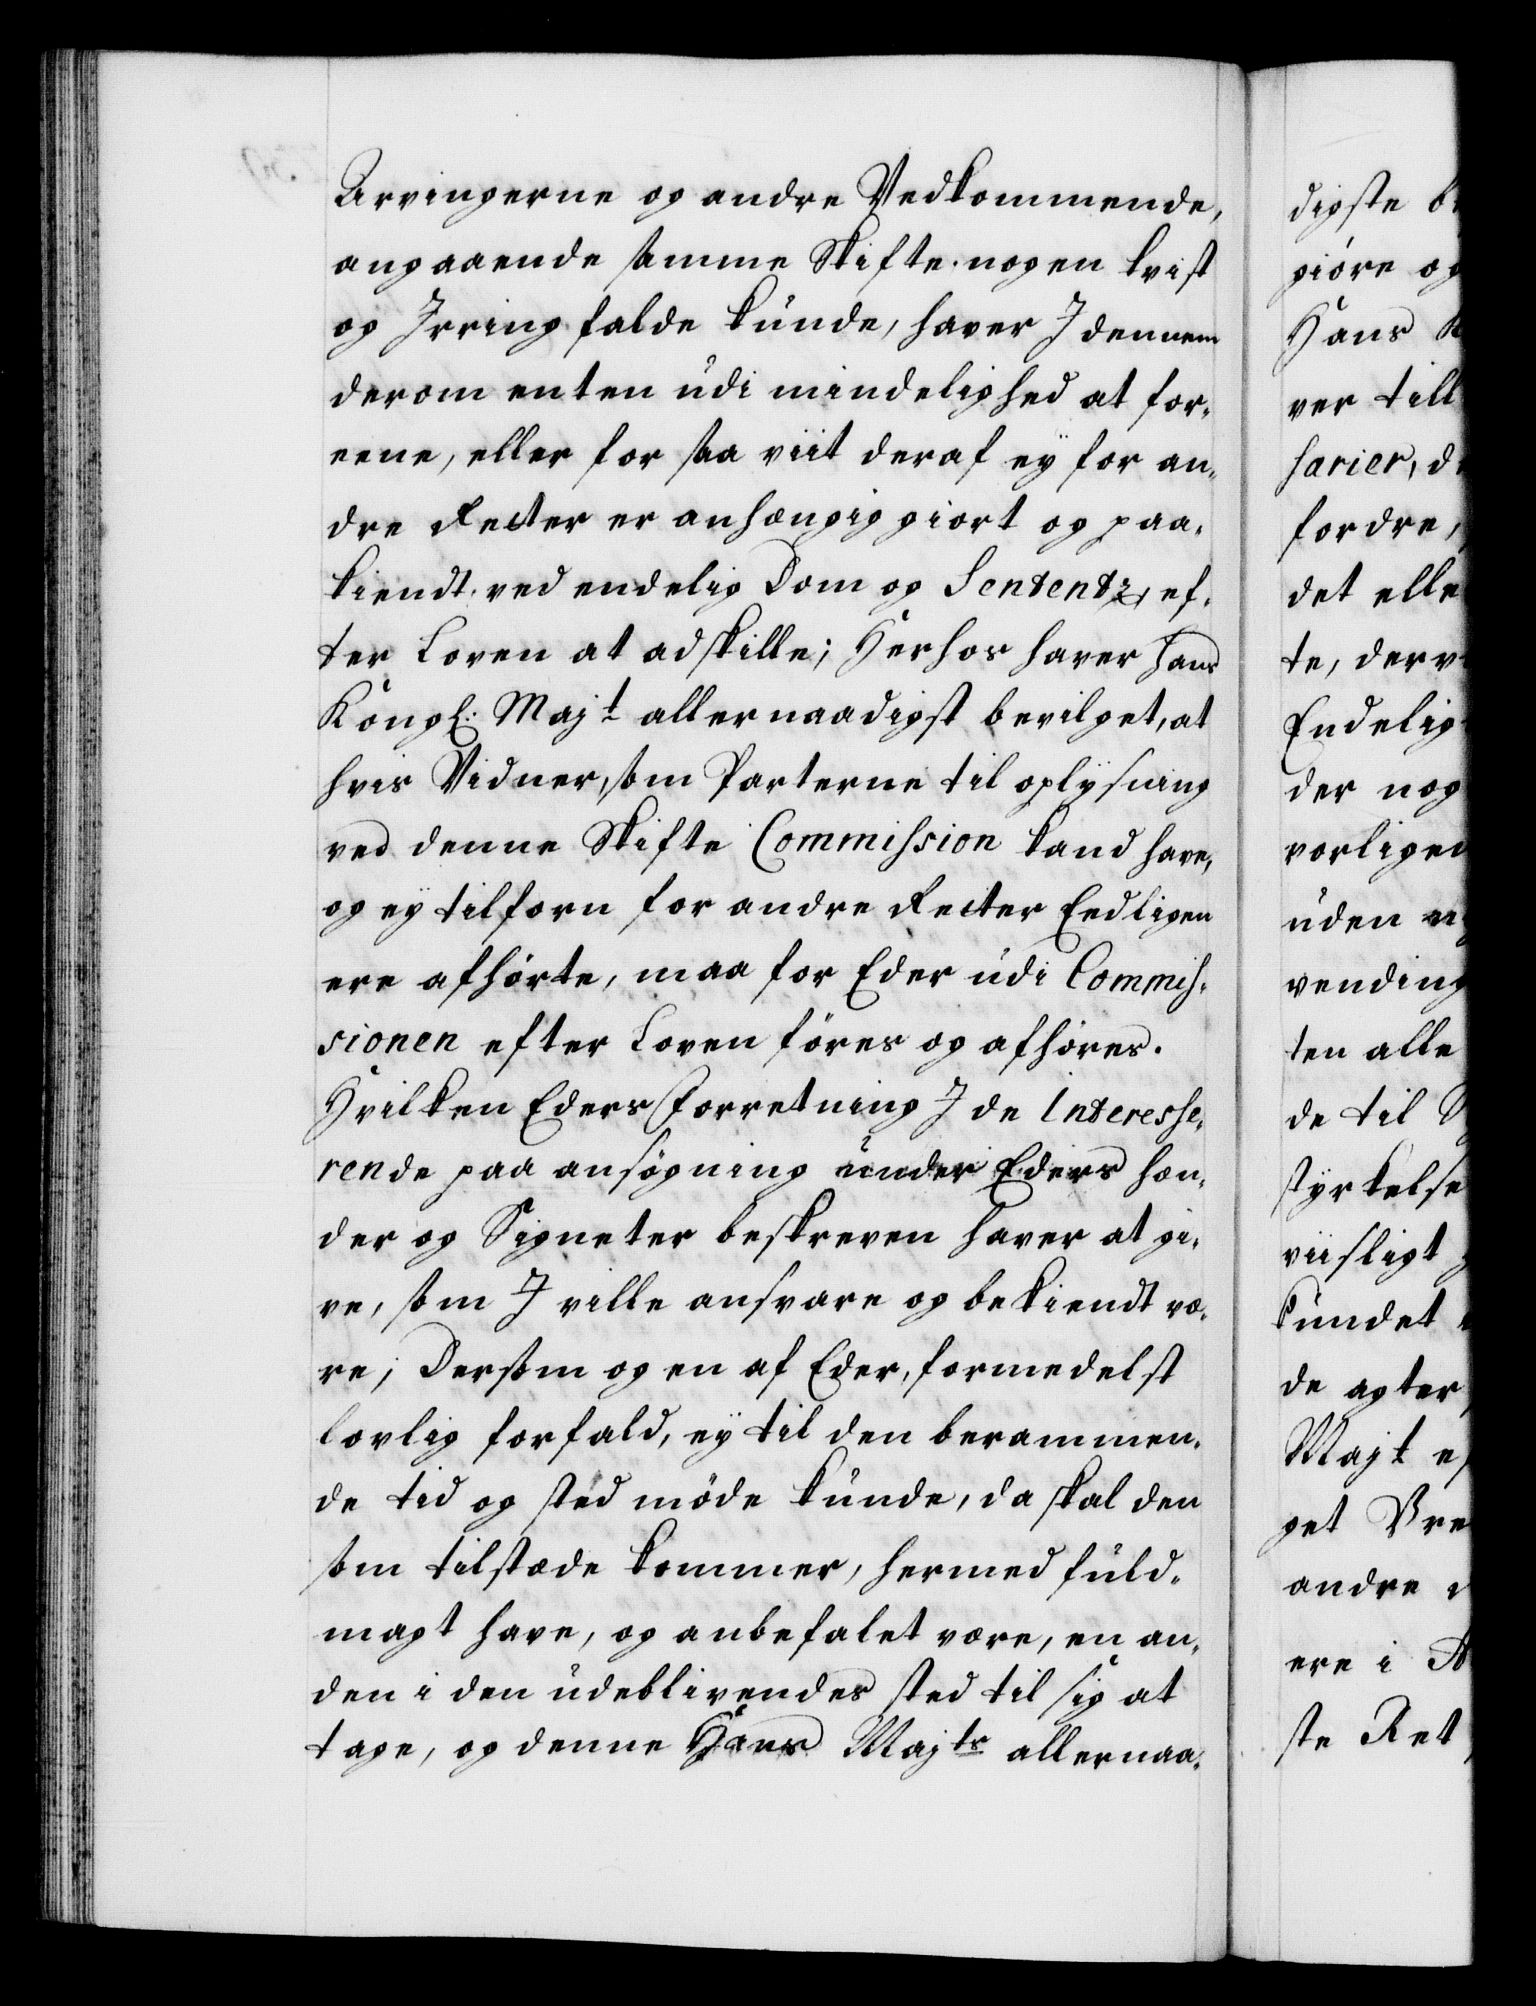 Arvingerne og andre Vedkommende,
angaaende samme Skifte nogen tvist
og Irring falde kunde, haver I dennem
derom enten udi mindelighed at for-
eene, eller for saa viit deraf ey for an-
dre Retter er anhængig giort og paa-
kiendt ved endelig Dom og Sententz, ef-
ter Loven at adskille; Herhos haver Hans
Kongl: Majt allernaadigst bevilget, at
hvis Vidner, som Parterne til oplysning
ved denne Skifte Commission kand have,
og ey tilforn for andre Retter Eedligen
ere afhørte, maa for Eder udi Commis-
sionen efter Loven føres og afhøres.
Hvilken Eders Forretning I de Interesse-
rende paa ansøgning under Eders hæn-
der og Signeter beskreven haver at gi-
ve, som I ville ansvare og bekiendt væ-
re; Dersom og en af Eder, formedelst
lovlig forfald, ey til den berammen-
de tid og sted møde kunde, da skal den
som tilstæde kommer, hermed fuld-
magt have, og anbefalet være, en an-
den i den udeblivendes sted til sig at
tage, og denne Hans Majts allernaa-
digste
giøre og
Hans
ver till
sarier,
fordre,
det elle
te, derv
Endelig
der nog
vorligen
uden
vending
ten alle
de til
styrkelse
viisligt
kundet
de agter
Majt
get Bre
andre
ere i
ste Ret